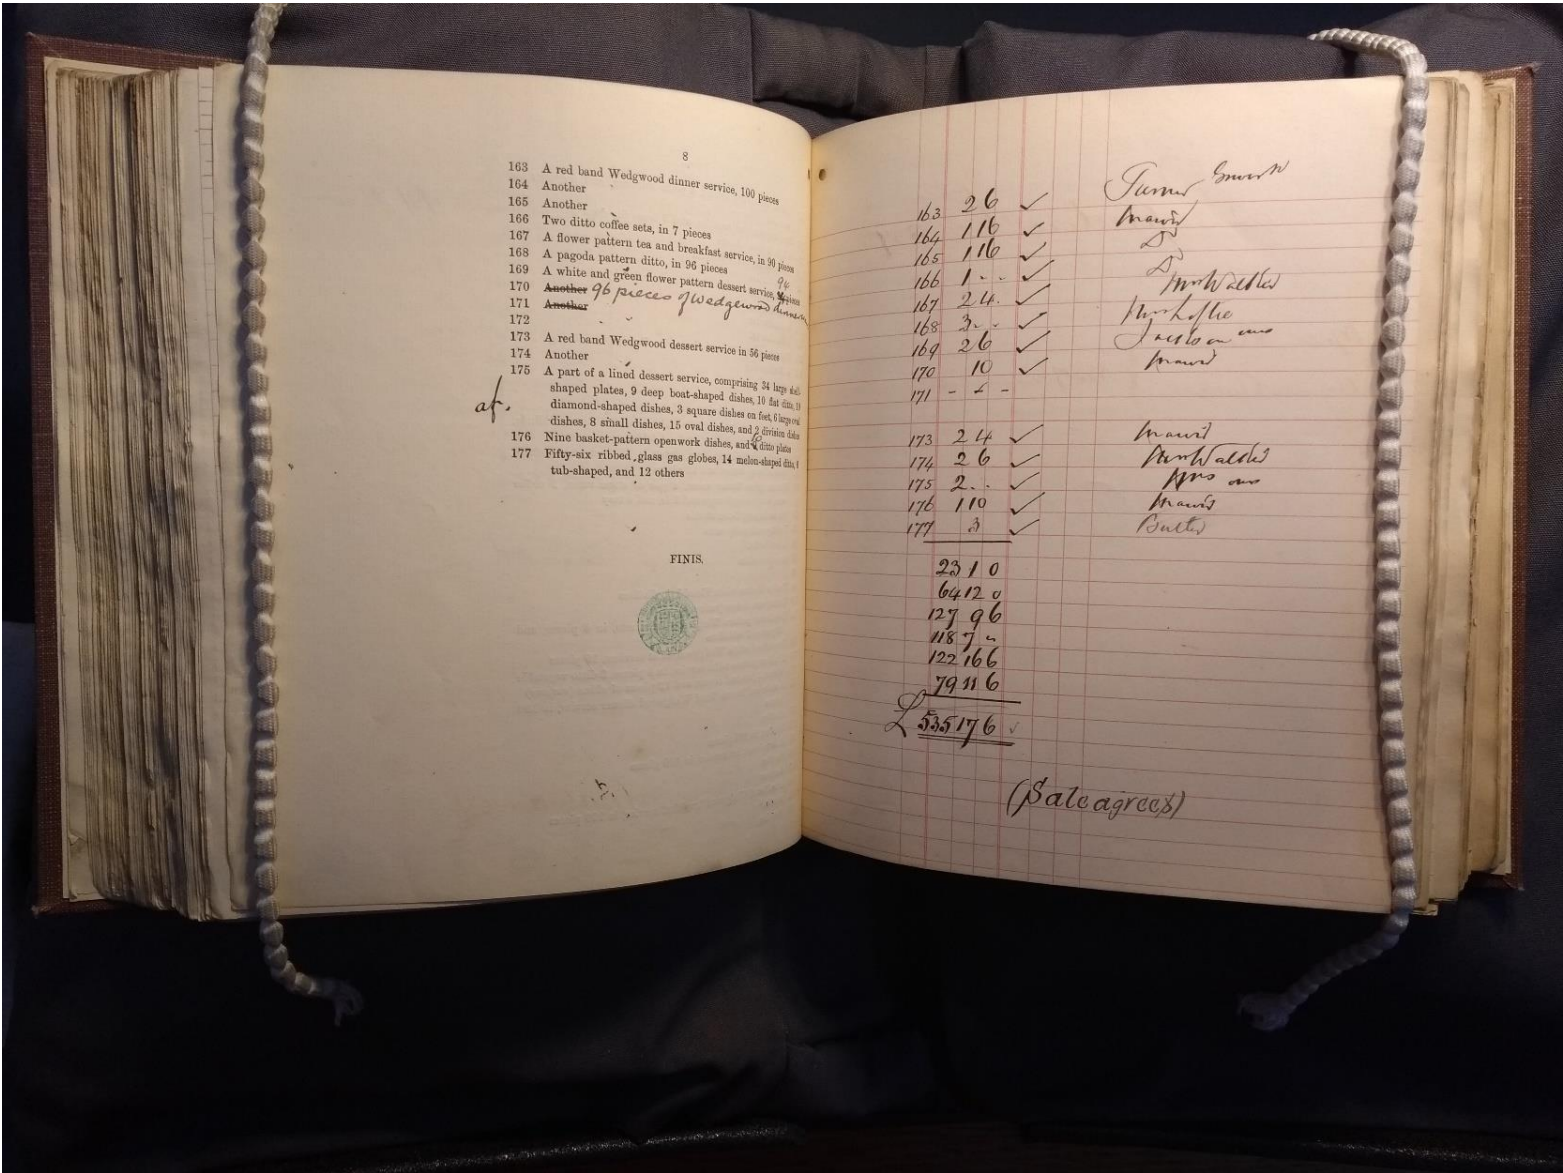 8
163 A red band Wedgwood dinner service, 100 pieces
164 Another
165 Another
166 Two ditto coffee sets, in 7 pieces
167 A flower pattern tea and breakfast service, in 90 pieces
168 A pagoda pattern ditto, in 96 pieces
94
169 A white and green flower pattern dessert service, pieces
170 Another 96 pieces of Wedgewood dinner
171 Another
172
173 A red band Wedgwood dessert service in 56 pieces
174 Another
175 A part of a lined dessert service, comprising 34 large shell-
shaped plates, 9 deep boat-shaped dishes, 10 flat ditto,
af.
diamond-shaped dishes, 3 square dishes on feet, 6 large oval
dishes, 8 small dishes, 15 oval dishes, and 2 division dishes
176 Nine basket-pattern openwork dishes, and ditto plates
177 Fifty-six ribbed glass gas globes, 14 melon-shaped ditto,
tub-shaped, and 12 others
FINIS.
163 2 6 ✓ Turner
164 1 16 ✓
165 1 16 ✓ D
166 1 - - ✓ D
167 2 4 ✓ Mrs Walker
168 3 - - ✓
169 2 6 ✓ Jackson
170 10 ✓
171 - - -
173 2 4 ✓
174 2 6 ✓ Mrs Walker
175 2 - - ✓
176 1 10 ✓
177 3 ✓ Butler
23 1 0
64 12 0
127 9 6
118 7 -
122 16 6
79 11 6
£ 535 17 6 ✓
(Sale agrees)